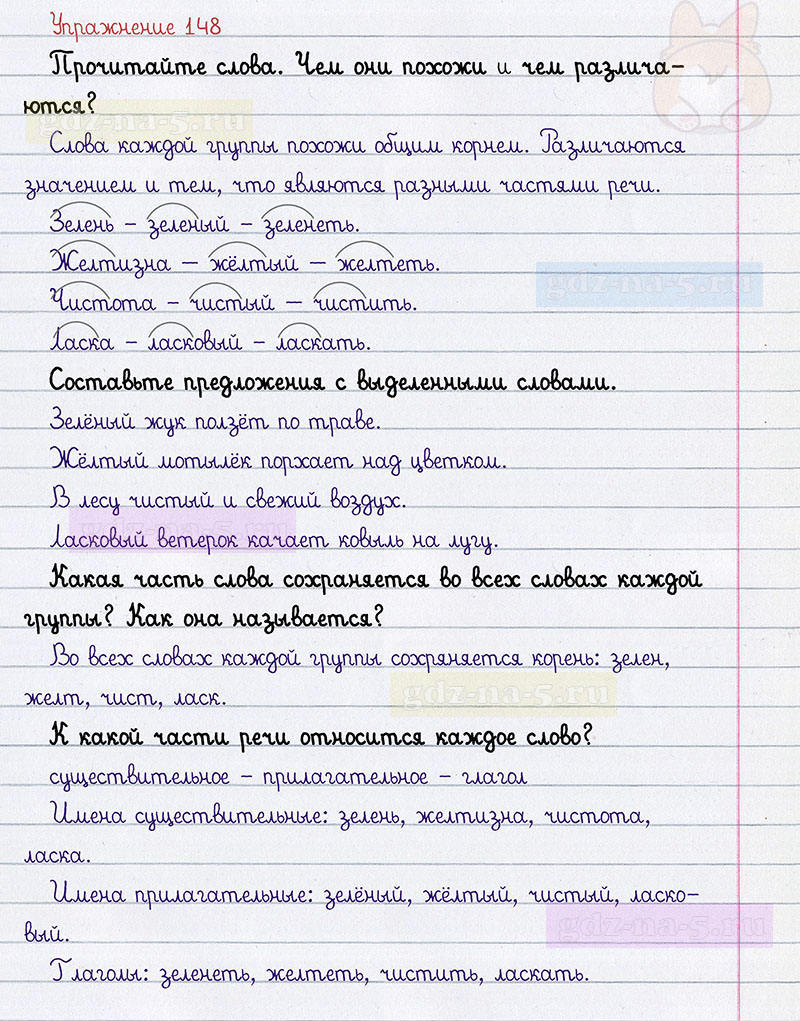 Упражнение 148
Прочитайте слова. Чем они похожи и чем различа-
ются?
gdz-na-5.ru
Слова каждой группы похожи общим корнем. Различаются
значением и тем, что являются разными частями речи.
Зелень – зеленый – зеленеть.
Желтизна – жёлтый – желтеть.
gdz-na-5.ru
Чистота – чистый – чистить.
Ласка – ласковый – ласкать.
Составьте предложения с выделенными словами.
Зелёный жук ползёт по траве.
Жёлтый мотылёк порхает над цветком.
В лесу чистый и свежий воздух.
gdz-na-5.ru
Ласковый ветерок качает ковыль на лугу.
Какая часть слова сохраняется во всех словах каждой
группы? Как она называется?
Во всех словах каждой группы сохряняется корень: зелен,
желт, чист, ласк.
gdz-na-5.ru
К какой части речи относится каждое слово?
существительное – прилагательное – глагол
Имена существительные: зелень, желтизна, чистота,
ласка.
Имена прилагательные: зелёный, жёлтый, чистый, ласко-
вый.
gdz-na-5.ru
Глаголы: зеленеть, желтеть, чистить, ласкать.